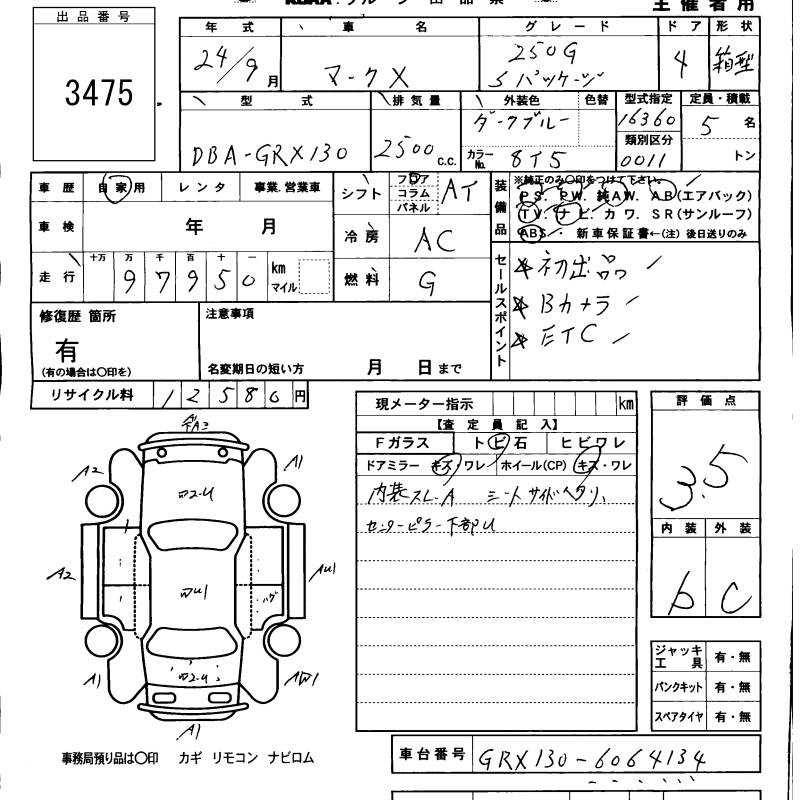 主催者用
出品番号
3475
年式 車名 グレード ドア 形状
24/9月 マークX 250G Sパッケージ 4 箱型
型式 排気量 外装色 色替 型式指定 定員・積載
DBA-GRX130 2500 c.c. ダークブルー 16360 5名
カラーNo. 8T5 類別区分 0011 トン
車歴 自家用 レンタ 事業.営業車
車検 年 月
走行 十万 万 千 百 十 一 km マイル
97950
シフト フロア コラム パネル AT
冷房 AC
燃料 G
装備品 ※純正のみ○印をつけて下さい。
PS. PW. 純AW. AB(エアバック)
TV. ナビ. カワ. SR(サンルーフ)
ABS. 新車保証書←(注) 後日送りのみ
セールスポイント
初出品
Bカメラ
ETC
修復歴 箇所
有
(有の場合は○印を)
注意事項
名変期日の短い方 月 日まで
リサイクル料 12580円
現メーター指示 km
【査定員記入】
Fガラス トビ石 ヒビワレ
ドアミラー キズ・ワレ ホイール(CP) キズ・ワレ
内装スレ-A シートサイドヘタリ、
センターピラー下部U
評価点
3.5
内装 外装
b C
A3
A2
A1
A2
A1
AW1
A1
ジャッキ工具 有・無
パンクキット 有・無
スペアタイヤ 有・無
事務局預り品は○印 カギ リモコン ナビロム
車台番号 GRX130-6064134